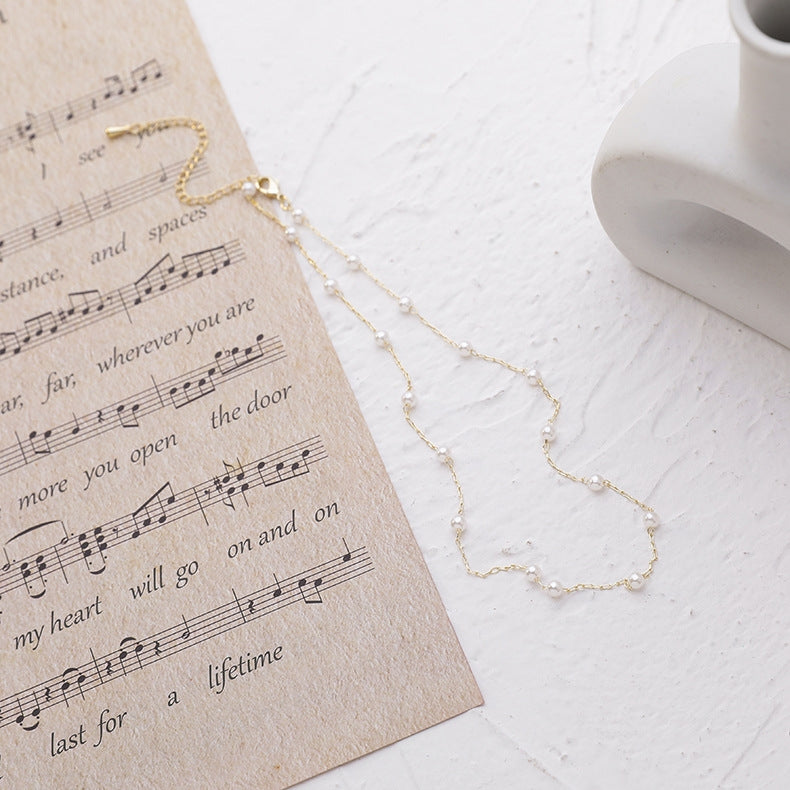 I see you
stance, and spaces
ar, far, wherever you are
more you open the door
my heart will go on and on
last for a lifetime